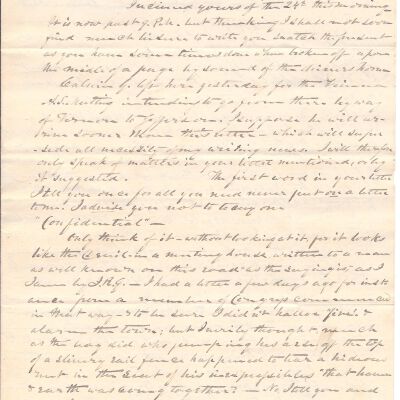 I received yours of the 24th this morning
It is now past 9. P.M. but thinking I shall not soon
find much leisure to write you I snatch the present
as you have sometimes done when broken off upon
the middle of a page by sound of the dinner horn
Calvin G. left here yesterday for the
& Curtis intends to go from there by way
of Vernon to I suppose he will ar-
rive sooner than this letter - which will super-
sede all necessity of my writing news. I will therefore
only speak of matters in your letter mentioned, or by
it suggested. The first word in your letter
I tell you once for all you need never put on a letter
to me. I advise you not to to any one
"Confidential" -
Only think of it - without looking at it, for it looks
like the Devil in a meeting house, written to a man
as well known on this road as the Engineers as I
am by I had a letter a few days ago for inst-
ance from a member of Congress commencing
in that way - & to be sure I did not halloo Fire! &
alarm the town; but I verily thought as much
as the boy did who jumping his off the top
of a slivery rail fence happened to hear a hideous
rent in the seat of his inexpressibles "that heaven
& earth was coming together". - No I tell you and